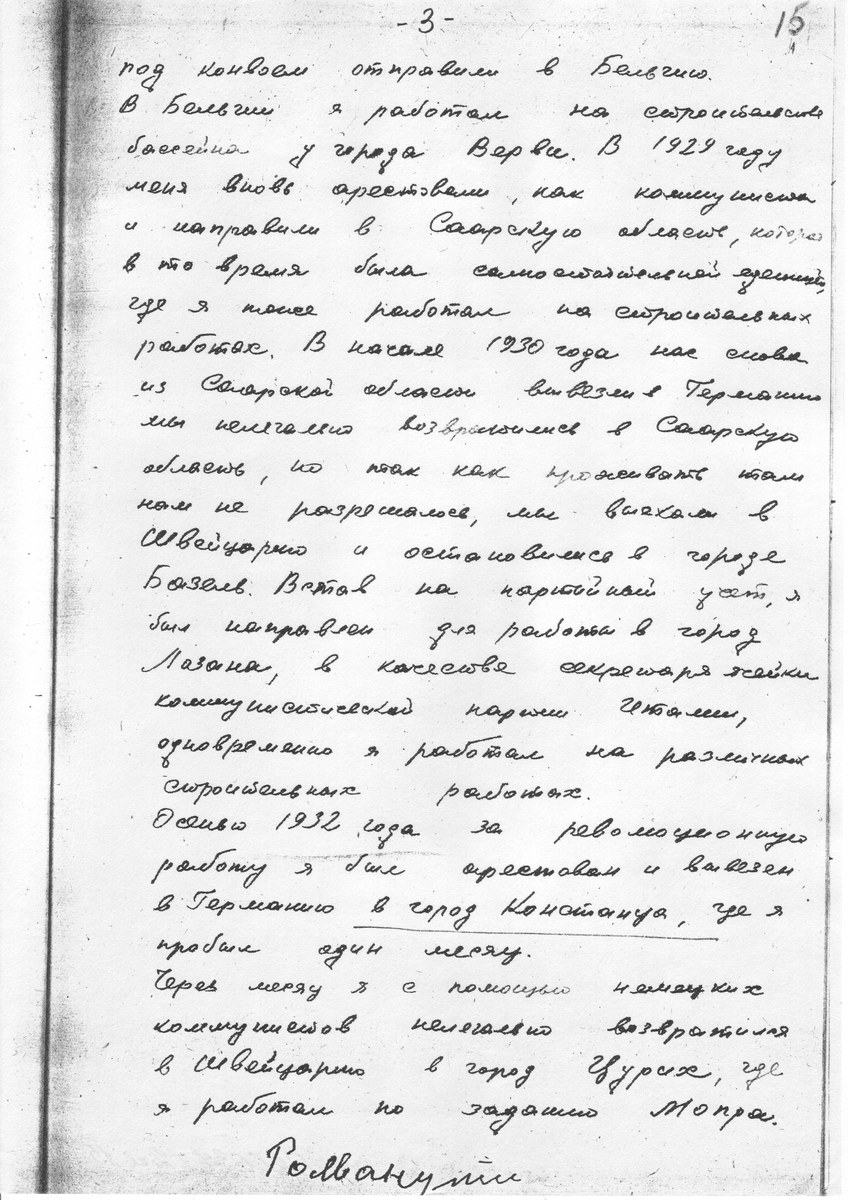 - 3 -
15
под конвоем отправили в Бельгию.
В Бельгии я работал на строительстве
бассейна у города Верви. В 1929 году
меня вновь арестовали, как коммуниста
и направили в Саарскую область, которая
в то время была самостоятельной единицей,
где я тоже работал на строительных
работах. В начале 1930 года нас снова
из Саарской области вывезли в Германию
мы нелегально возвратились в Саарскую
область, но так как проживать там
нам не разрешалось, мы выехали в
Швейцарию и остановились в городе
Базель. Встав на партийный учет, я
был направлен для работы в город
Лозана, в качестве секретаря ячейки
коммунистической партии Италии,
одновременно я работал на различных
строительных работах.
Осенью 1932 года за революционную
работу я был арестован и вывезен
в Германию в город Констанца, где я
пробыл один месяц.
Через месяц я с помощью немецких
коммунистов нелегально возвратился
в Швейцарию в город Цурих, где
я работал по заданию Мопра.